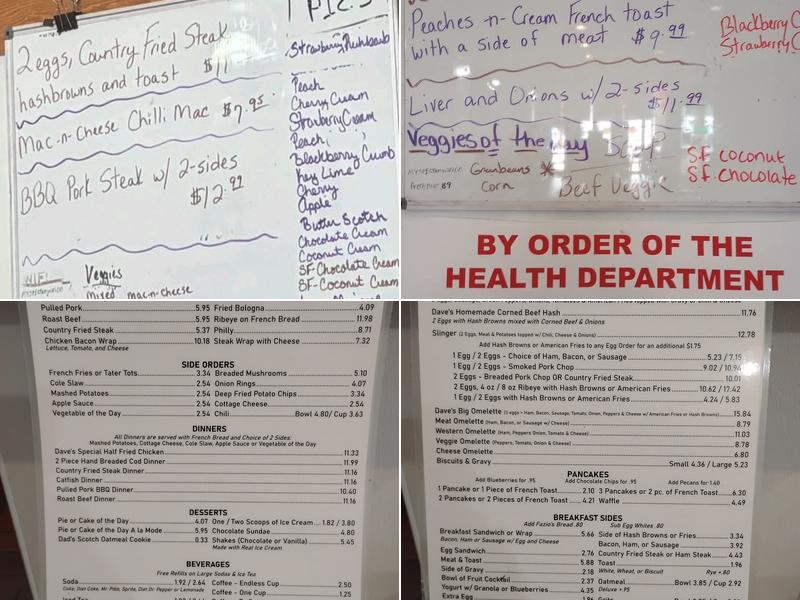 2 eggs, Country Fried Steak
hashbrowns and toast $11
Mac-n-Cheese Chilli Mac $7.95
BBQ Pork Steak w/ 2-sides
$12.99
WIFI
Veggies
Mixed mac-n-cheese
PIES
Strawberry Ruhbarb
Peach
Cherry Cream
Strawberry Cream
Peach
Blackberry Crumb
Key Lime
Cherry
Apple
Butter Scotch
Chocolate Cream
Coconut Cream
SF-Chocolate Cream
SF-Coconut Cream
Peaches -n- Cream French toast
with a side of meat $9.99
Blackberry C
Strawberry C
Liver and Onions w/ 2-sides
$11.99
Veggies of the day
Greenbeans
Corn
Beef Veggie
SF coconut
SF-chocolate
BY ORDER OF THE
HEALTH DEPARTMENT
Pulled Pork 5.95 Fried Bologna 4.09
Roast Beef 5.95 Ribeye on French Bread 11.98
Country Fried Steak 5.37 Philly 8.71
Chicken Bacon Wrap 10.18 Steak Wrap with Cheese 7.32
Lettuce, Tomato, and Cheese
SIDE ORDERS
French Fries or Tater Tots 3.34 Breaded Mushrooms 5.10
Cole Slaw 2.54 Onion Rings 4.07
Mashed Potatoes 2.54 Deep Fried Potato Chips 3.34
Apple Sauce 2.54 Cottage Cheese 2.54
Vegetable of the Day 2.54 Chili Bowl 4.80/ Cup 3.63
DINNERS
All Dinners are served with French Bread and Choice of 2 Sides:
Mashed Potatoes, Cottage Cheese, Cole Slaw, Apple Sauce or Vegetable of the Day
Dave's Special Half Fried Chicken 11.33
2 Piece Hand Breaded Cod Dinner 11.99
Country Fried Steak Dinner 11.16
Catfish Dinner 11.16
Pulled Pork BBQ Dinner 10.40
Roast Beef Dinner 11.16
DESSERTS
Pie or Cake of the Day 4.07 One / Two Scoops of Ice Cream 1.82 / 3.80
Pie or Cake of the Day A la Mode 5.95 Chocolate Sundae 4.80
Dad's Scotch Oatmeal Cookie 0.33 Shakes (Chocolate or Vanilla) 5.45
Made with Real Ice Cream
BEVERAGES
Free Refills on Large Sodas & Ice Tea
Soda 1.92 / 2.64 Coffee - Endless Cup 2.50
Coke, Diet Coke, Mr. Pibb, Sprite, Diet Dr. Pepper or Lemonade Coffee - One Cup 1.25
Dave's Homemade Corned Beef Hash 11.76
2 Eggs with Hash Browns mixed with Corned Beef & Onions
Slinger (2 Eggs, Meat & Potatoes topped w/ Chili, Cheese & Onions) 12.78
Add Hash Browns or American Fries to any Egg Order for an additional $1.75
1 Egg / 2 Eggs - Choice of Ham, Bacon, or Sausage 5.23 / 7.15
1 Egg / 2 Eggs - Smoked Pork Chop 9.02 / 10.94
2 Eggs - Breaded Pork Chop OR Country Fried Steak 10.01
2 Eggs, 4 oz / 8 oz Ribeye with Hash Browns or American Fries 10.62 / 17.42
1 Egg / 2 Eggs with Hash Browns or American Fries 4.24 / 5.83
Dave's Big Omelette (3 eggs - Ham, Bacon, Sausage, Tomato, Onion, Peppers & Cheese w/ American Fries or Hash Browns) 15.84
Meat Omelette (Ham, Bacon, or Sausage w/ Cheese) 8.79
Western Omelette (Ham, Peppers Onion, Tomato & Cheese) 11.03
Veggie Omelette (Peppers, Tomato, Onion & Cheese) 8.78
Cheese Omelette 6.80
Biscuits & Gravy Small 4.36 / Large 5.23
PANCAKES
Add Blueberries for .95 Add Chocolate Chips for .95 Add Pecans for 1.40
1 Pancake or 1 Piece of French Toast 2.10 3 Pancakes or 2 pc. of French Toast 6.30
2 Pancakes or 2 Pieces of French Toast 4.21 Waffle 4.49
BREAKFAST SIDES
Add Fazio's Bread .80 Sub Egg Whites .80
Breakfast Sandwich or Wrap 5.66 Side of Hash Browns or Fries 3.34
Bacon, Ham or Sausage w/ Egg and Cheese Bacon, Ham, or Sausage 3.92
Egg Sandwich 2.76 Country Fried Steak or Ham Steak 4.43
Meat & Toast 5.88 Toast 1.96
Side of Gravy 2.18 White, Wheat, or Biscuit Rye +.80
Bowl of Fruit Cocktail 2.37 Oatmeal Bowl 3.85 / Cup 2.92
Yogurt w/ Granola or Blueberries 4.35 Deluxe +.95
Extra Egg 1.96 Grits